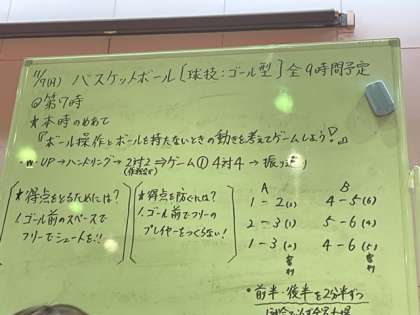 11/7(月) バスケットボール［球技:ゴール型］全9時間予定
◎第7時
★本時のめあて
『ボール操作とボールを持たないときの動きを考えてゲームしよう!』
・W-UP→ハンドリング→2対2⇒ゲーム① 4対4→振り返り
★得点をとるためには?
1.ゴール前のスペースで
フリーでシュートを!!
★得点を防ぐには?
1.ゴール前でフリーの
プレイヤーをつくらない!
A
1-2(3)
2-3(1)
1-3(2)
審判
B
4-5(6)
5-6(4)
4-6(5)
審判
・前半・後半を2分半ずつ